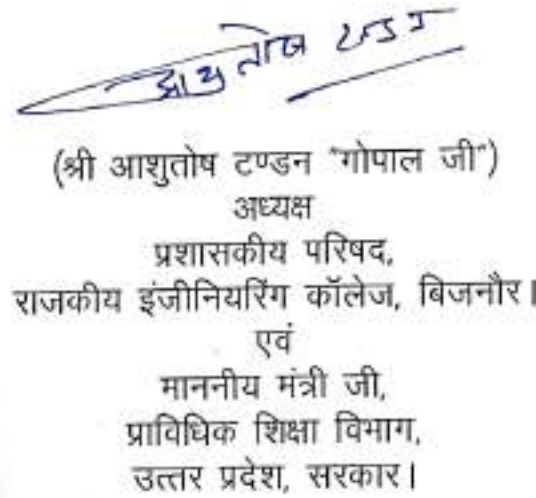 आशुतोष टण्डन
(श्री आशुतोष टण्डन "गोपाल जी")
अध्यक्ष
प्रशासकीय परिषद,
राजकीय इंजीनियरिंग कॉलेज, बिजनौर।
एवं
माननीय मंत्री जी,
प्राविधिक शिक्षा विभाग,
उत्तर प्रदेश, सरकार।